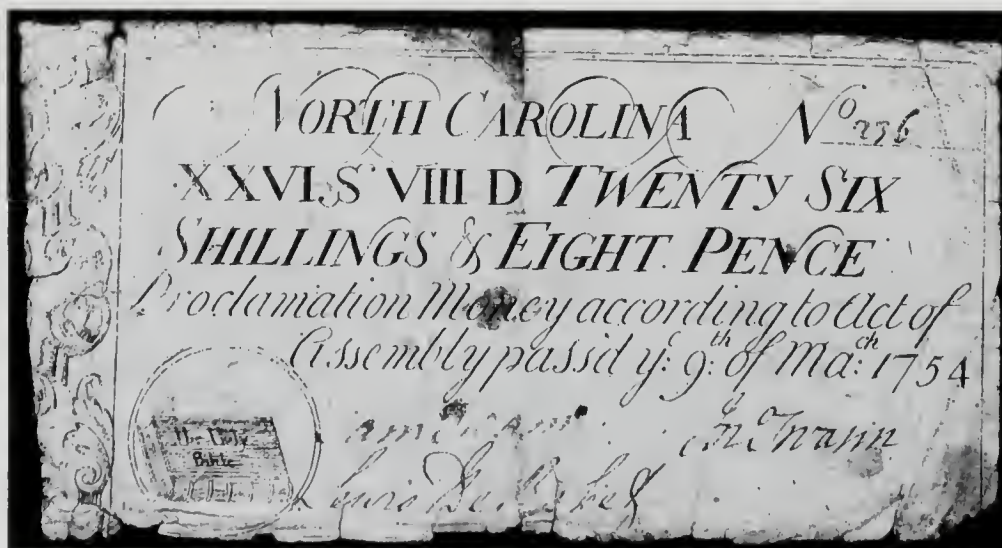 NORTH CAROLINA No 276
XXVI.S VIII D TWENTY SIX
SHILLINGS & EIGHT PENCE
Proclamation Money according to Act of
Assembly passid ye 9th of Mach 1754
The Holy
Bible
Lewis De